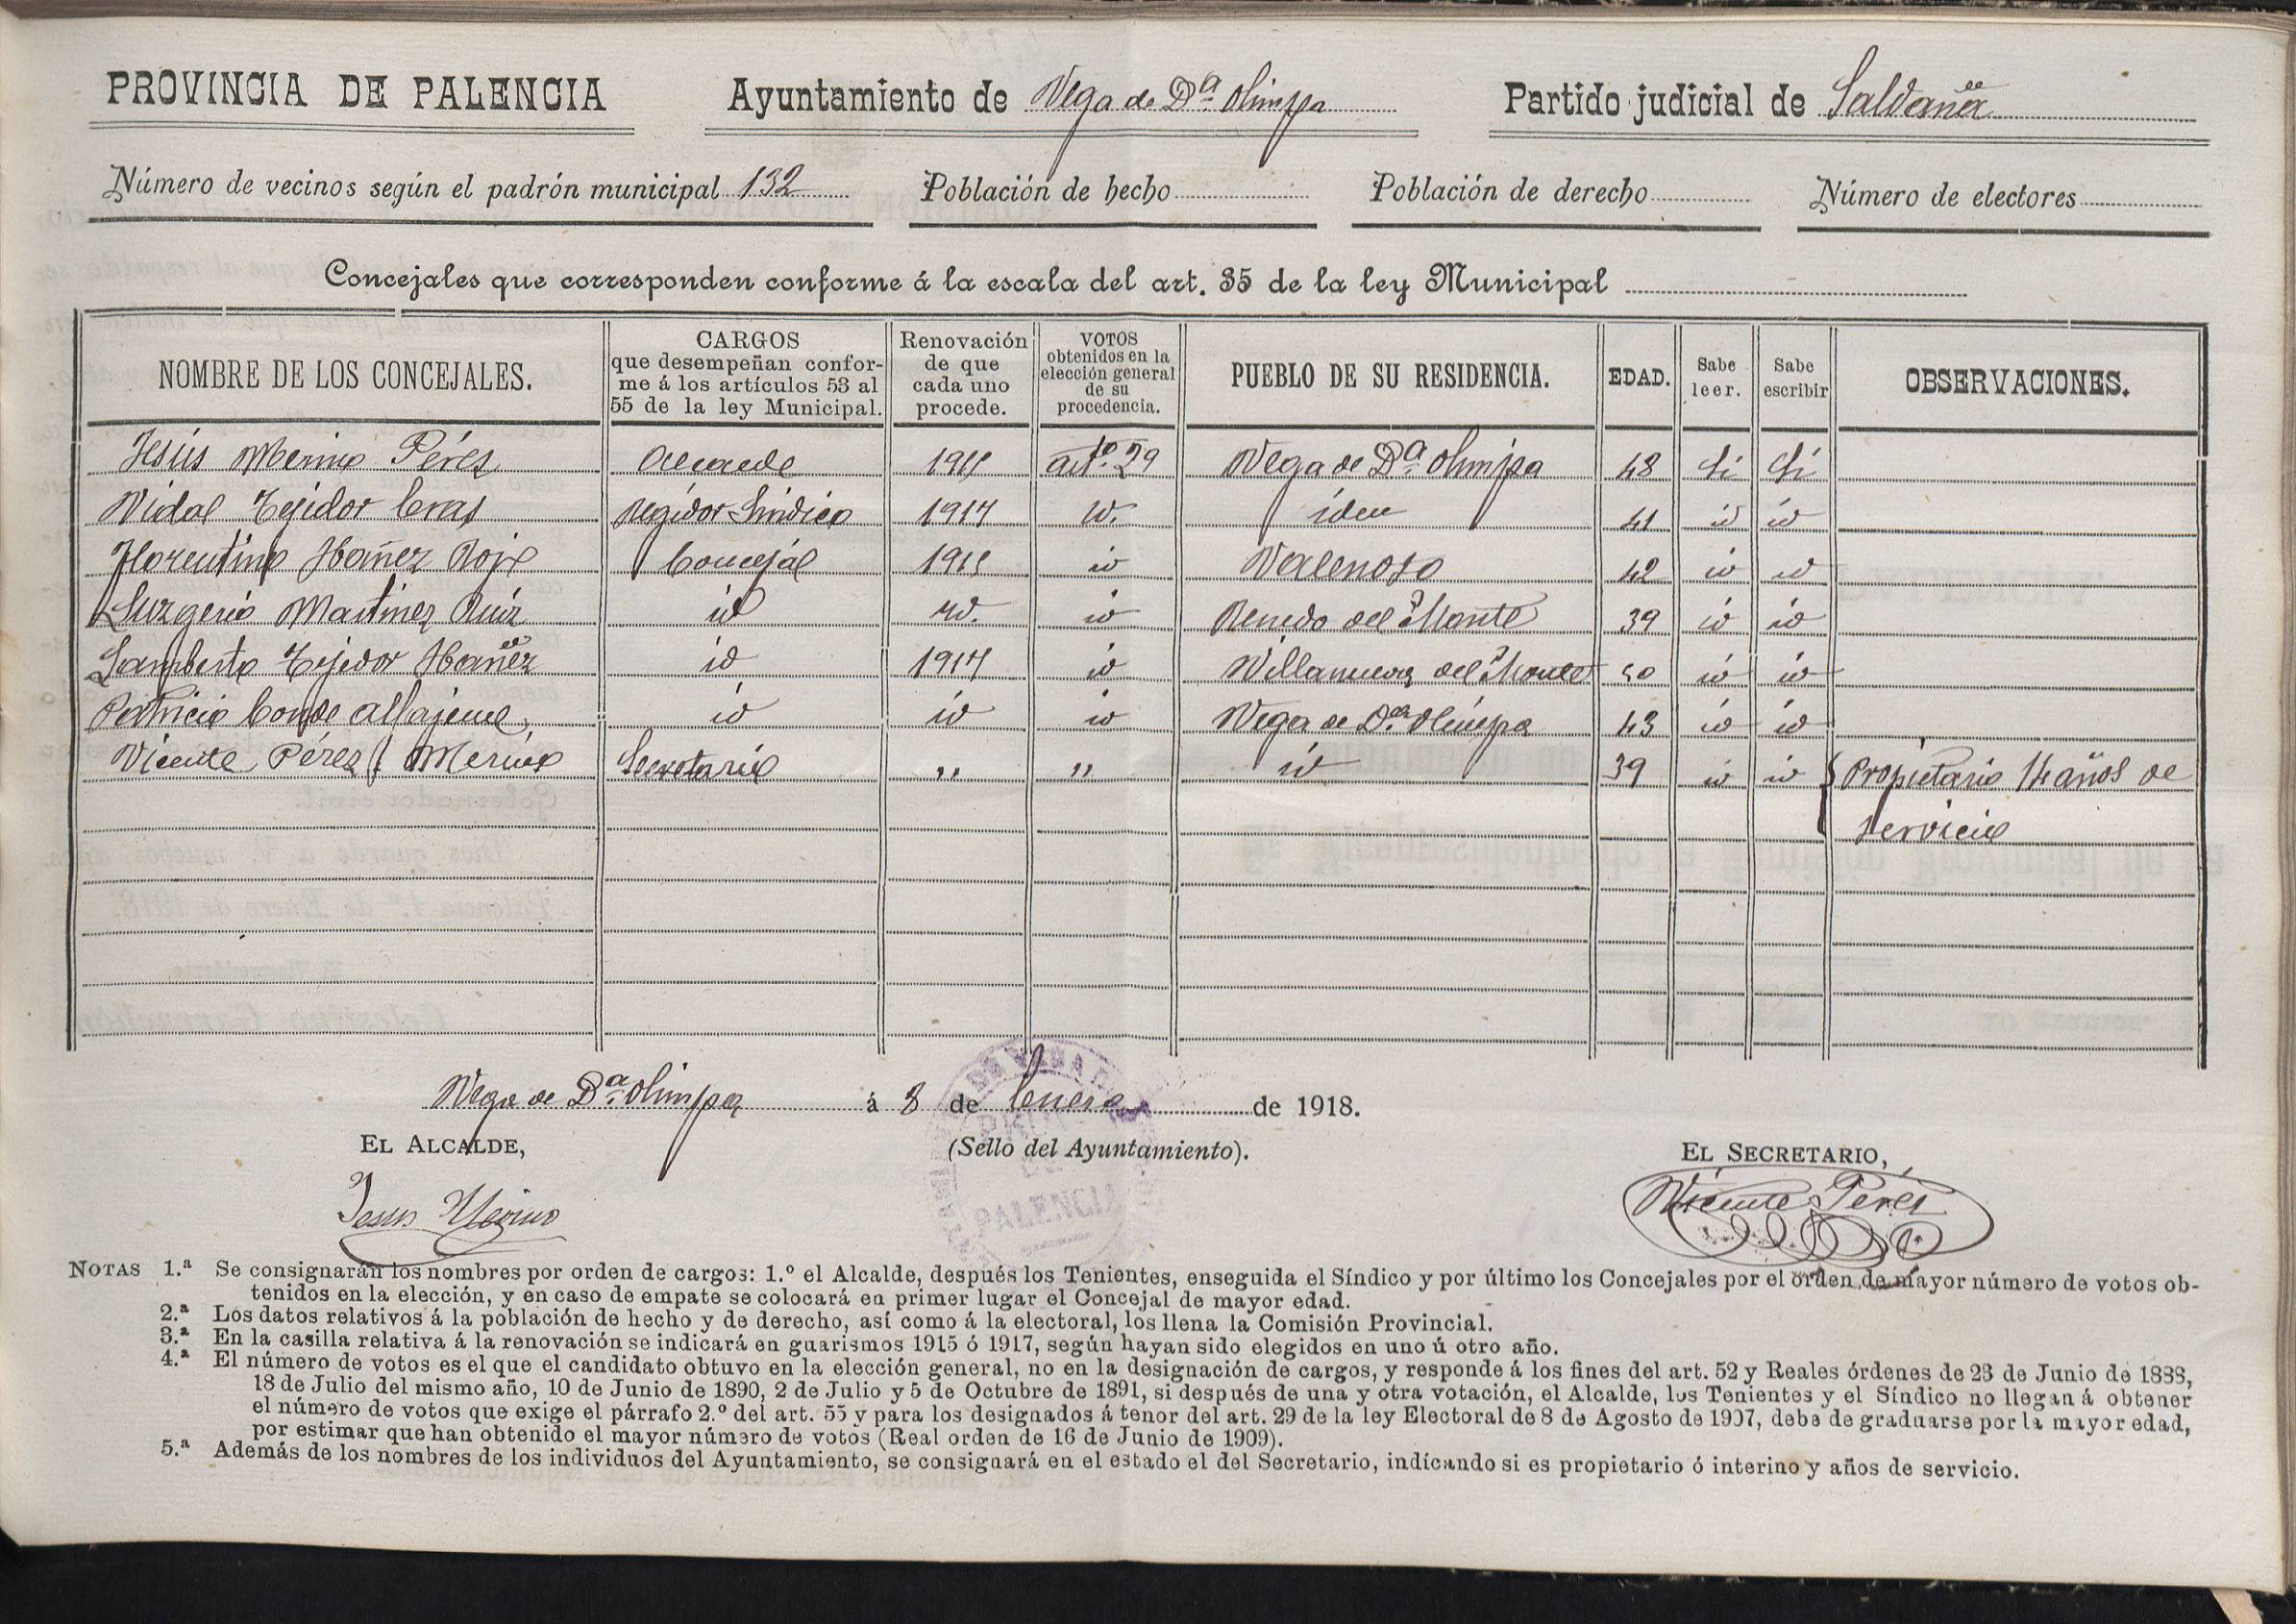 PROVINCIA DE PALENCIA Ayuntamiento de Vega de Dª Olimpa Partido judicial de Saldaña
Número de vecinos según el padrón municipal 132 Población de hecho Población de derecho Número de electores
Concejales que corresponden conforme á la escala del art. 35 de la ley Municipal
NOMBRE DE LOS CONCEJALES. CARGOS que desempeñan conforme á los artículos 53 al 55 de la ley Municipal. Renovación de que cada uno procede. VOTOS obtenidos en la elección general de su procedencia. PUEBLO DE SU RESIDENCIA. EDAD. Sabe leer. Sabe escribir OBSERVACIONES.
Jesús Merino Pérez Alcalde artº. 29 Vega de Dª Olimpa 48 Si Si
Vidal Tejidor Eras Regidor Sindico 1917 id. idem 41 id id
Florentino Ibañez Concejal 1915 id Valenoso 42 id id
Martinez Ruiz id id. id Renedo del Monte 39 id id
Lamberto Tejedor Ibañez id 1917 id Villanueva del Monte 50 id id
Patricio Conde Alfajeme id id id Vega de Dª Olimpa 43 id id
Vicente Pérez Merino Secretario " " id 39 id id Propietario 14 años de
servicio
Vega de Dª Olimpa á 8 de Enero de 1918.
EL ALCALDE, (Sello del Ayuntamiento). EL SECRETARIO,
Jesus Merino PALENCIA Vicente Pérez
NOTAS 1.ª Se consignarán los nombres por orden de cargos: 1.º el Alcalde, después los Tenientes, enseguida el Síndico y por último los Concejales por el orden de mayor número de votos ob-
tenidos en la elección, y en caso de empate se colocará en primer lugar el Concejal de mayor edad.
2.ª Los datos relativos á la población de hecho y de derecho, así como á la electoral, los llena la Comisión Provincial.
3.ª En la casilla relativa á la renovación se indicará en guarismos 1915 ó 1917, según hayan sido elegidos en uno ú otro año.
4.ª El número de votos es el que el candidato obtuvo en la elección general, no en la designación de cargos, y responde á los fines del art. 52 y Reales órdenes de 23 de Junio de 1888,
18 de Julio del mismo año, 10 de Junio de 1890, 2 de Julio y 5 de Octubre de 1891, si después de una y otra votación, el Alcalde, los Tenientes y el Síndico no llegan á obtener
el número de votos que exige el párrafo 2.º del art. 55 y para los designados á tenor del art. 29 de la ley Electoral de 8 de Agosto de 1907, debe de graduarse por la mayor edad,
por estimar que han obtenido el mayor número de votos (Real orden de 16 de Junio de 1909).
5.ª Además de los nombres de los individuos del Ayuntamiento, se consignará en el estado el del Secretario, indicando si es propietario ó interino y años de servicio.